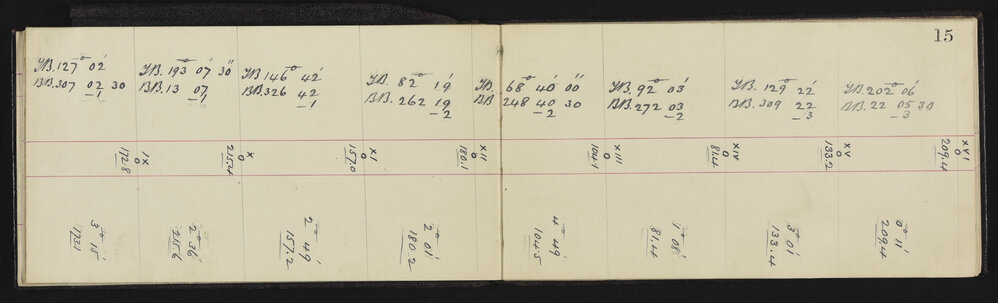 15
FB. 127° 02'
BB. 307 02 30
-1
FB. 193° 07' 30"
BB. 13 07
-1
FB 146° 42'
BB. 326 42
-1
FB. 82° 19'
BB. 262 19
-2
FB. 68° 40' 00"
BB 248 40 30
-2
FB. 92° 03'
BB. 272 03
-2
FB. 129° 22'
BB. 309 22
-3
FB. 202° 06'
BB. 22 05 30
-3
IX
O
172.8
X
O
215.4
XI
O
157.0
XII
O
180.1
XIII
O
104.1
XIV
O
81.4
XV
O
133.2
XVI
O
209.4
3° 15'
173.1
2° 36'
215.6
2° 49'
157.2
2° 01'
180.2
4° 49'
104.5
1° 08'
81.4
3° 01'
133.4
0° 11'
209.4